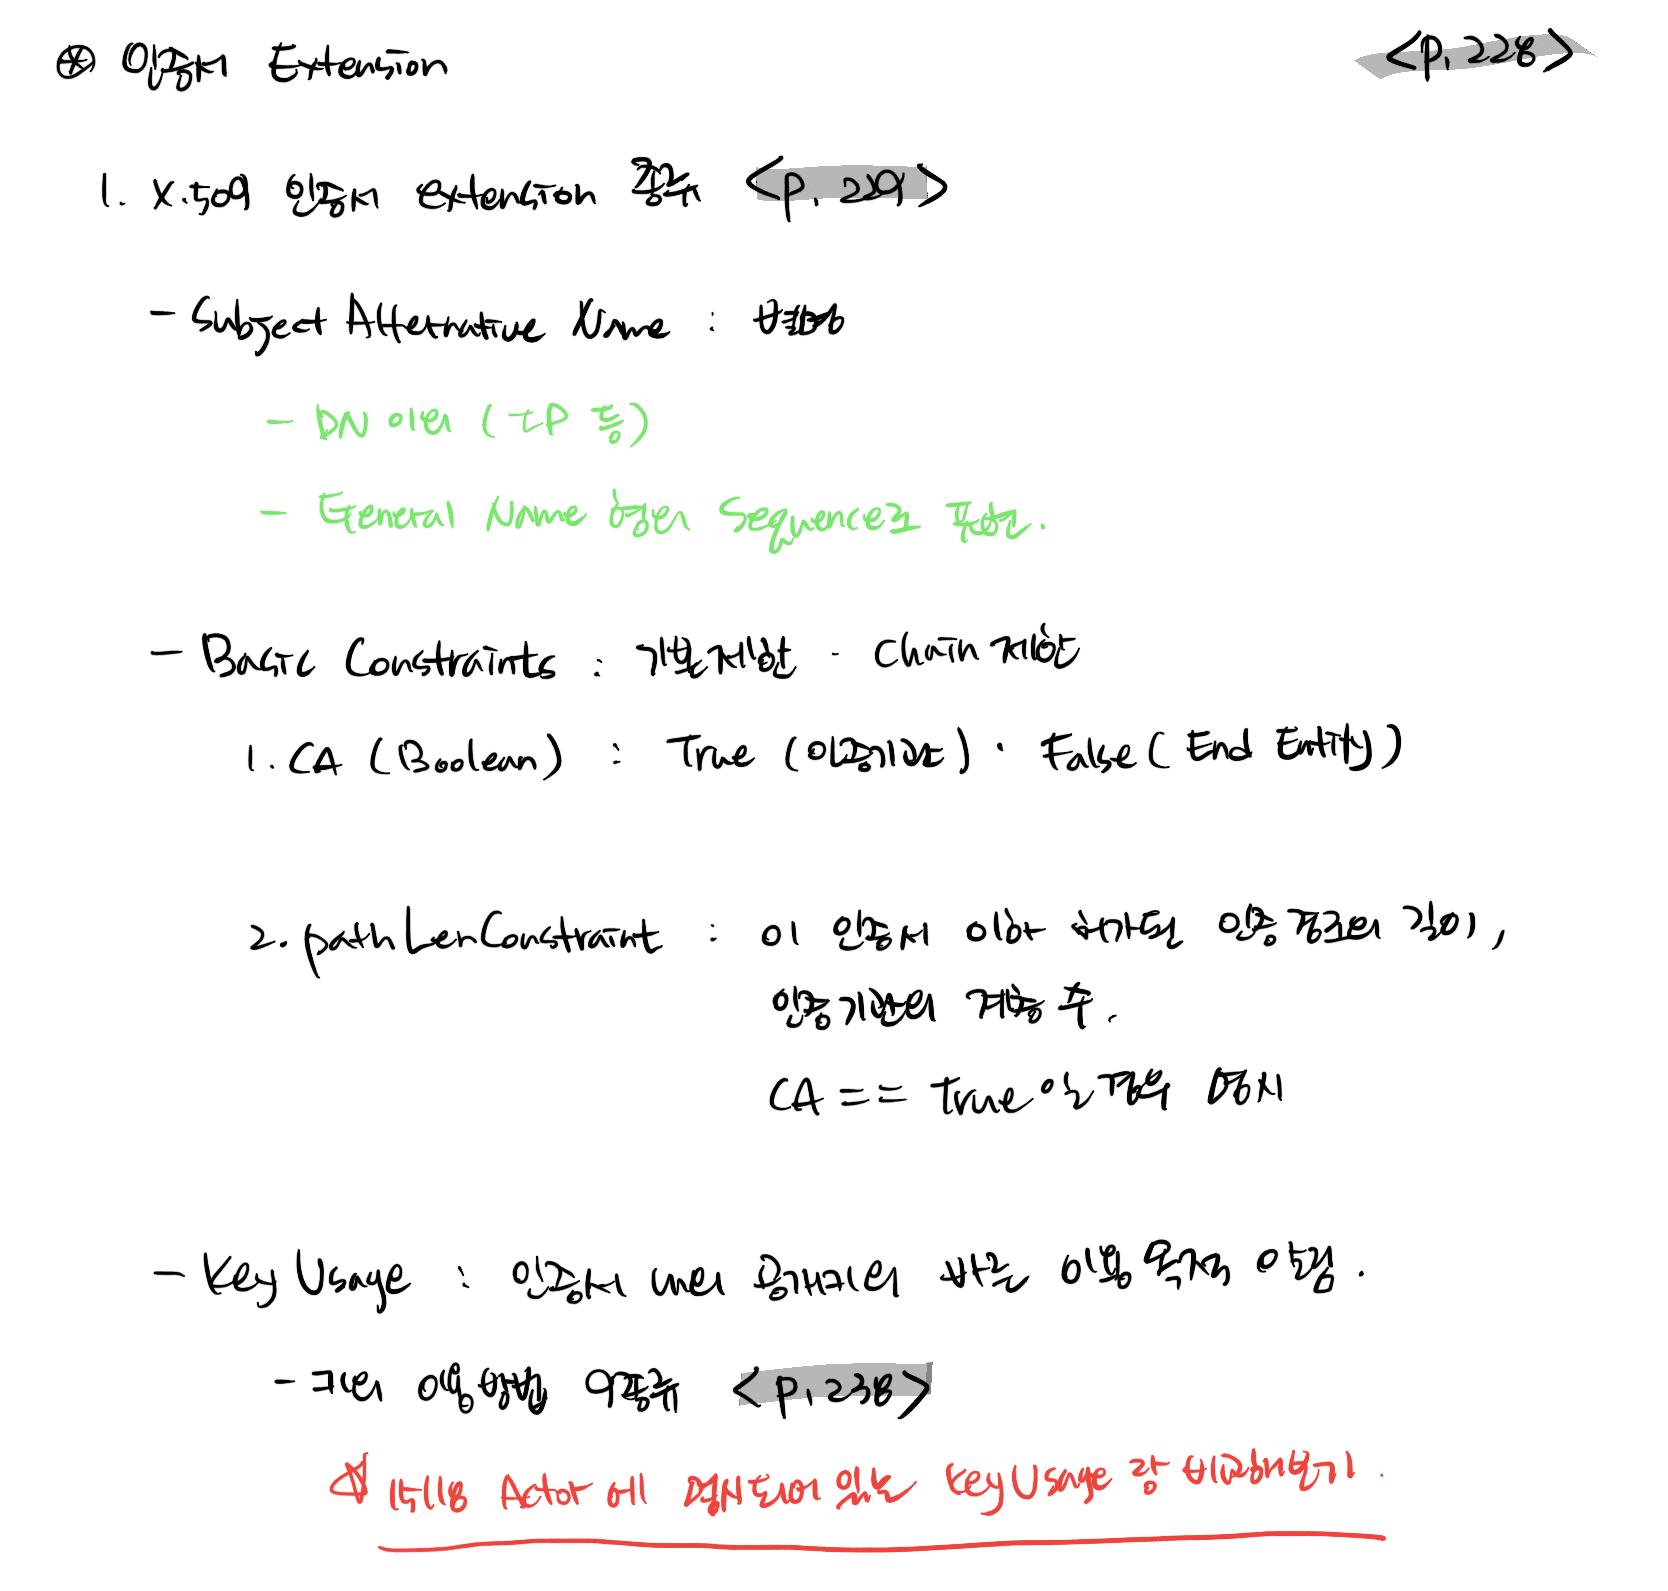 ⊛ 인증서 Extension <p. 228>
1. X.509 인증서 extension 종류 <p. 229>
- Subject Alternative Name : 별명
- DN 이외 (IP 등)
- General Name 형의 Sequence로 표현.
- Basic Constraints : 기본제한 · Chain 제한
1. CA (Boolean) : True (인증기관) · False (End Entity)
2. pathLenConstraint : 이 인증서 이하 허가된 인증 경로의 길이,
인증기관의 계층 수.
CA == True 일 경우 명시
- Key Usage : 인증서 내의 공개키의 바른 이용 목적 알림.
- 키의 이용방법 9종류 <p. 238>
☆ 15118 Actor에 명시되어 있는 Key Usage 랑 비교해보기.